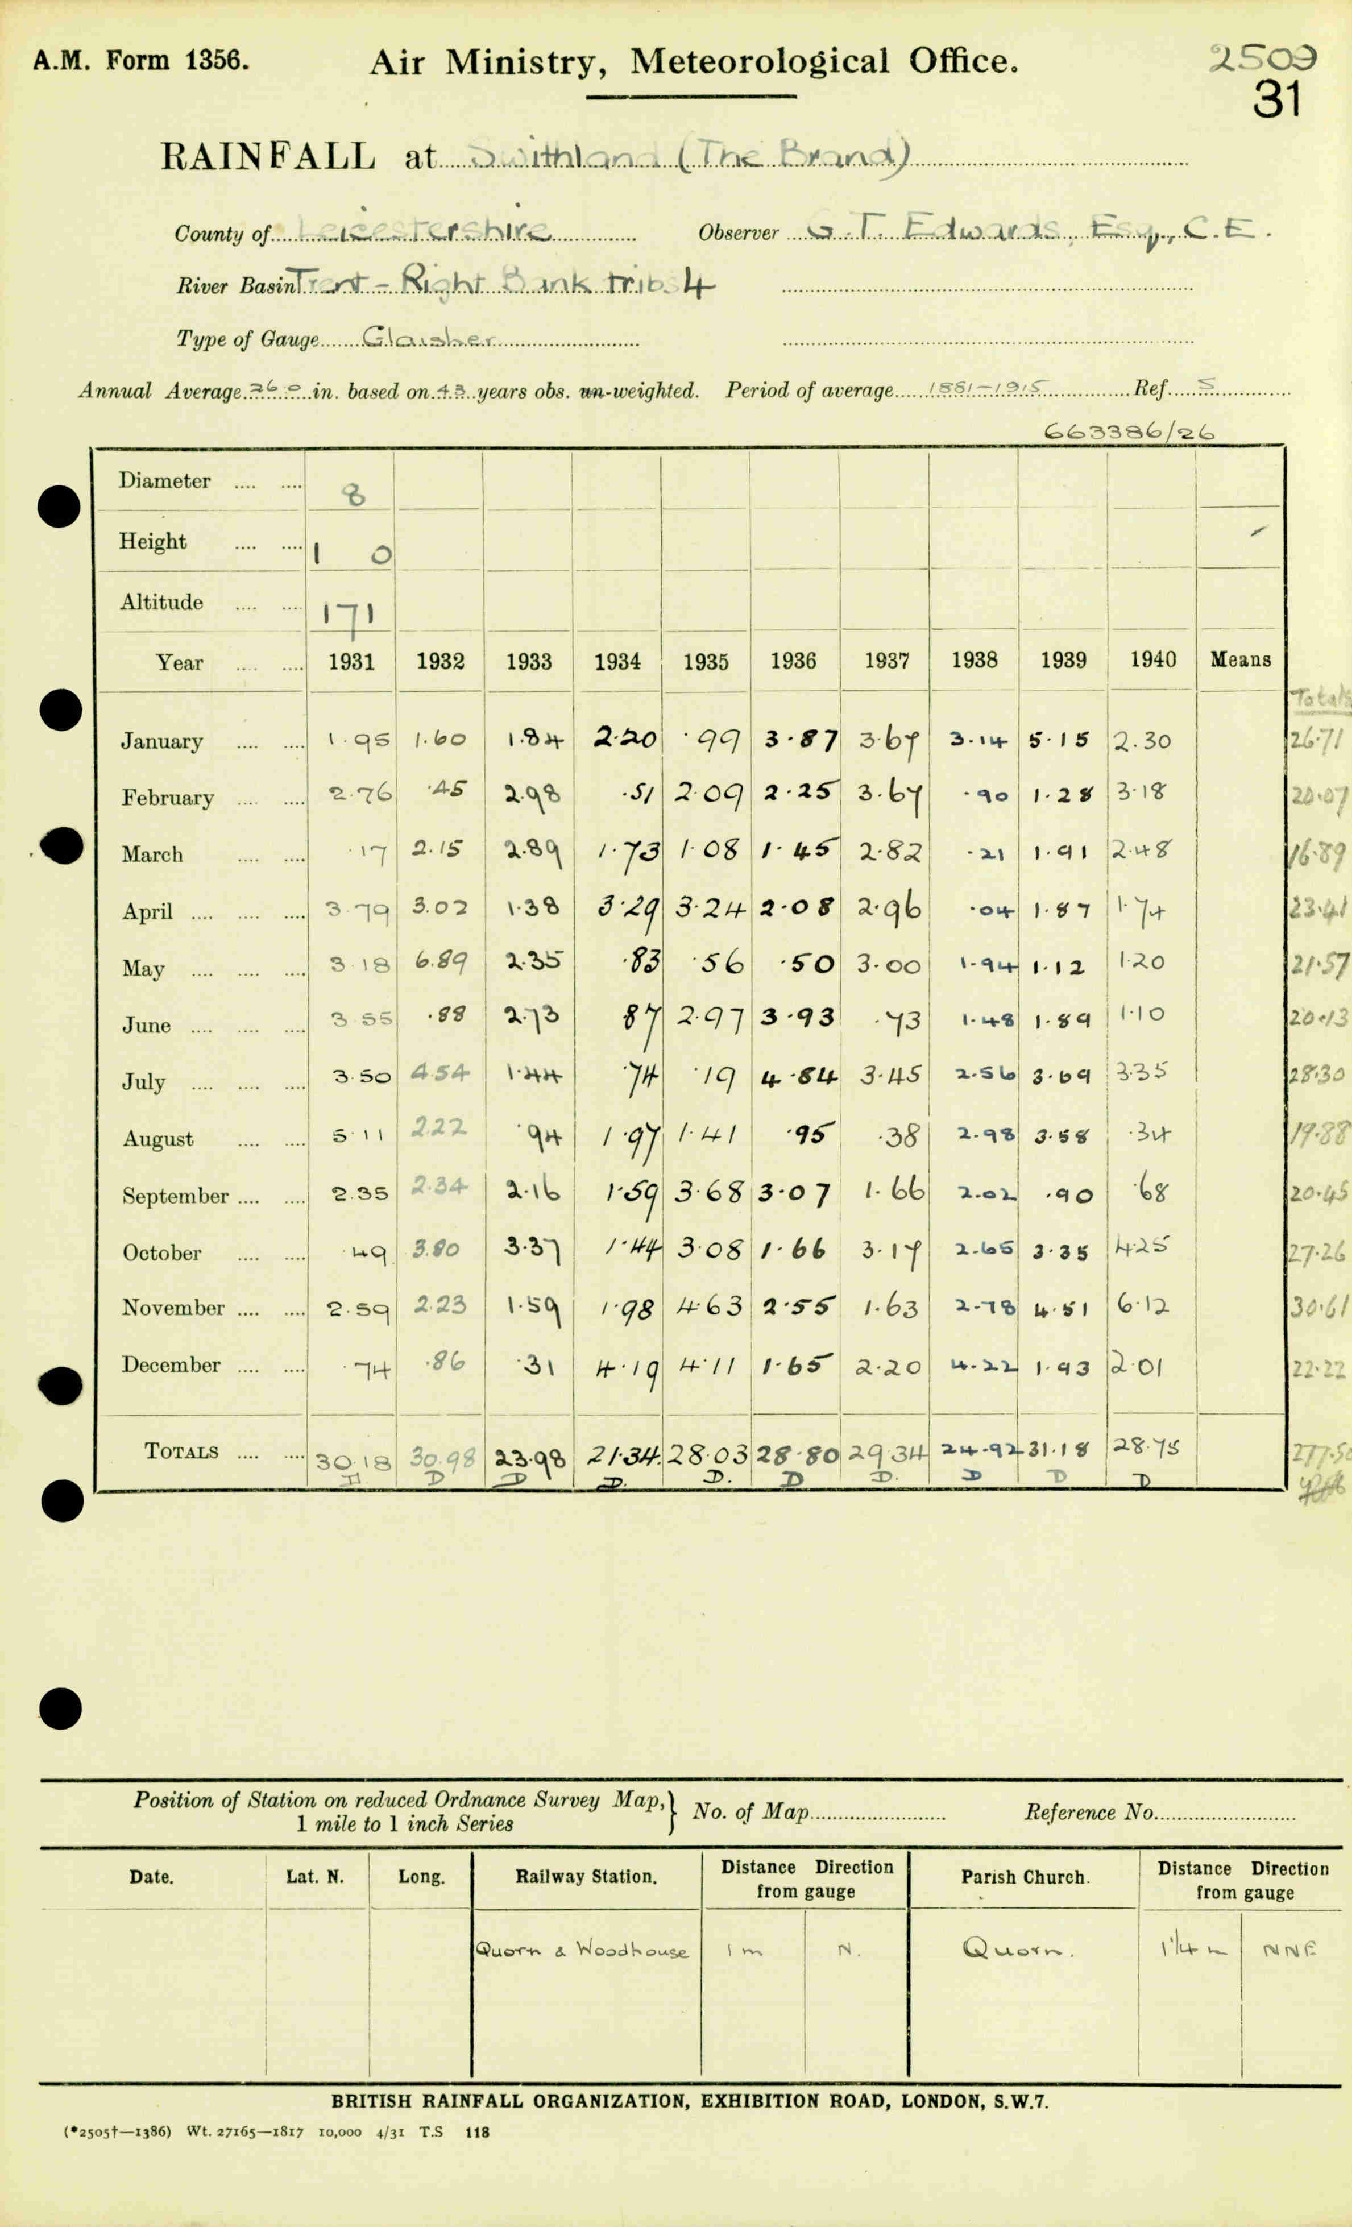 A.M. Form 1356. Air Ministry, Meteorological Office. 2509
31
RAINFALL at Swithland (The Brand)
County of Leicestershire Observer G.T. Edwards, Esq., C.E.
River Basin Trent - Right Bank tribs 4
Type of Gauge Glaisher
Annual Average 26.0 in. based on 43 years obs. un-weighted. Period of average 1881-1915 Ref. S
663386/26
Diameter 8
Height 1 0
Altitude 171
Year 1931 1932 1933 1934 1935 1936 1937 1938 1939 1940 Means
Totals
January 1.95 1.60 1.84 2.20 .99 3.87 3.67 3.14 5.15 2.30 26.71
February 2.76 .45 2.98 .51 2.09 2.25 3.67 .90 1.28 3.18 20.07
March .17 2.15 2.89 1.73 1.08 1.45 2.82 .21 1.91 2.48 16.89
April 3.79 3.02 1.38 3.29 3.24 2.08 2.96 .04 1.87 1.74 23.41
May 3.18 6.89 2.35 .83 .56 .50 3.00 1.94 1.12 1.20 21.57
June 3.55 .88 2.73 .87 2.97 3.93 .73 1.48 1.89 1.10 20.13
July 3.50 4.54 1.44 .74 .19 4.84 3.45 2.56 3.69 3.35 28.30
August 5.11 2.22 .94 1.97 1.41 .95 .38 2.98 3.58 .34 19.88
September 2.35 2.34 2.16 1.59 3.68 3.07 1.66 2.02 .90 .68 20.45
October .49 3.80 3.37 1.44 3.08 1.66 3.17 2.65 3.35 4.25 27.26
November 2.59 2.23 1.59 1.98 4.63 2.55 1.63 2.78 4.51 6.12 30.61
December .74 .86 .31 4.19 4.11 1.65 2.20 4.22 1.93 2.01 22.22
TOTALS 30.18 30.98 23.98 21.34 28.03 28.80 29.34 24.92 31.18 28.75 277.50
D D D D. D. D D. D D D
Position of Station on reduced Ordnance Survey Map, } No. of Map Reference No.
1 mile to 1 inch Series
Date. Lat. N. Long. Railway Station. Distance Direction from gauge Parish Church. Distance Direction from gauge
Quorn & Woodhouse 1 m N. Quorn. 1 1/4 m NNE
BRITISH RAINFALL ORGANIZATION, EXHIBITION ROAD, LONDON, S.W.7.
(*2505†—1386) Wt. 27165—1817 10,000 4/31 T.S 118